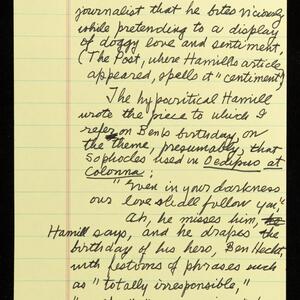 journalist that he bites viciously
while pretending to a display
of doggy love and sentiment.
(The Post, where Hamill's article
appeared, spells it "centiment")
The hypocritical Hamill
wrote the piece to which I
refer on Ben's birthday, on
the theme, presumably, that
Sophocles used in Oedipus at
Colonna:
"Even in your darkness
our love shall follow you,"
Ah, he misses him,
Hamill says, and he drapes the
birthday of his hero, Ben Hecht,
with festoons of phrases such
as "totally irresponsible,"